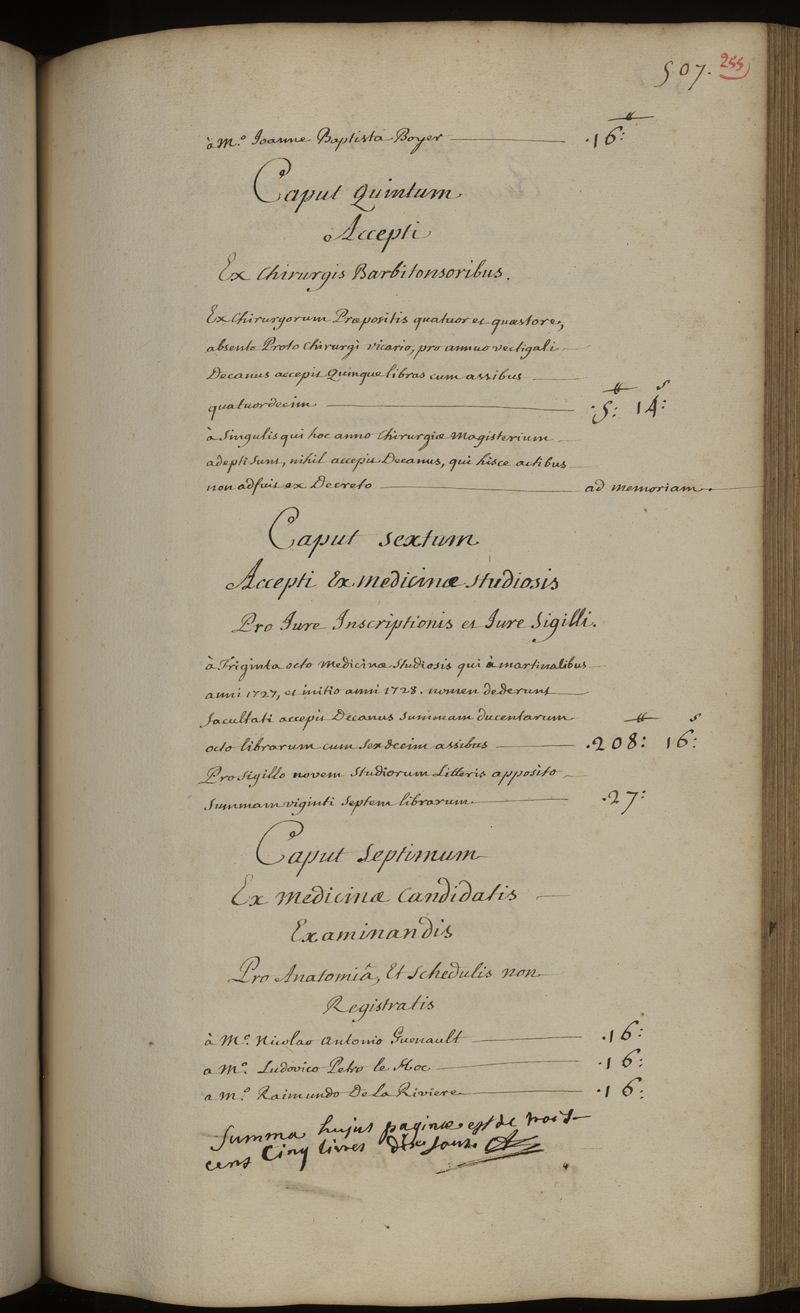 507. 255
à M.º Joanne Baptista Boyer .16:
Caput Quintum
Accepti
Ex Chirurgis Barbitonsoribus.
Ex Chirurgorum Præpositis quatuor et quæstore,
absente Proto Chirurgi vicario, pro annuo vectigali
Decanus accepit Quinque libras cum assibus
quatuordecim .5: 14:
à Singulis qui hoc anno Chirurgiæ Magisterium
adepti sunt, nihil accepit Decanus, qui hisce actibus
non adfuit ex Decreto ad memoriam.
Caput sextum
Accepti Ex medicinæ studiosis
Pro Jure Inscriptionis et Jure Sigilli.
à Triginta octo Medicinæ Studiosis qui à martinalibus
anni 1727, et initio anni 1728. nomen dederunt
facultati accepit Decanus Summam ducentarum
octo librarum cum sexdecim assibus .208: 16:
Pro Sigillo novem Studiorum Litteris apposito
Summam viginti septem librarum .27:
Caput Septimum
Ex medicinæ Candidatis
Examinandis
Pro Anatomiâ, Et Schedulis non
Registratis
à M.º Nicolao Antonio Guenault .16:
a M.º Ludovico Petro le Hoc .16:
a M.º Raimundo De La Riviere .16:
Summa hujus paginæ est de trois
cens Cinq livres dix sous.